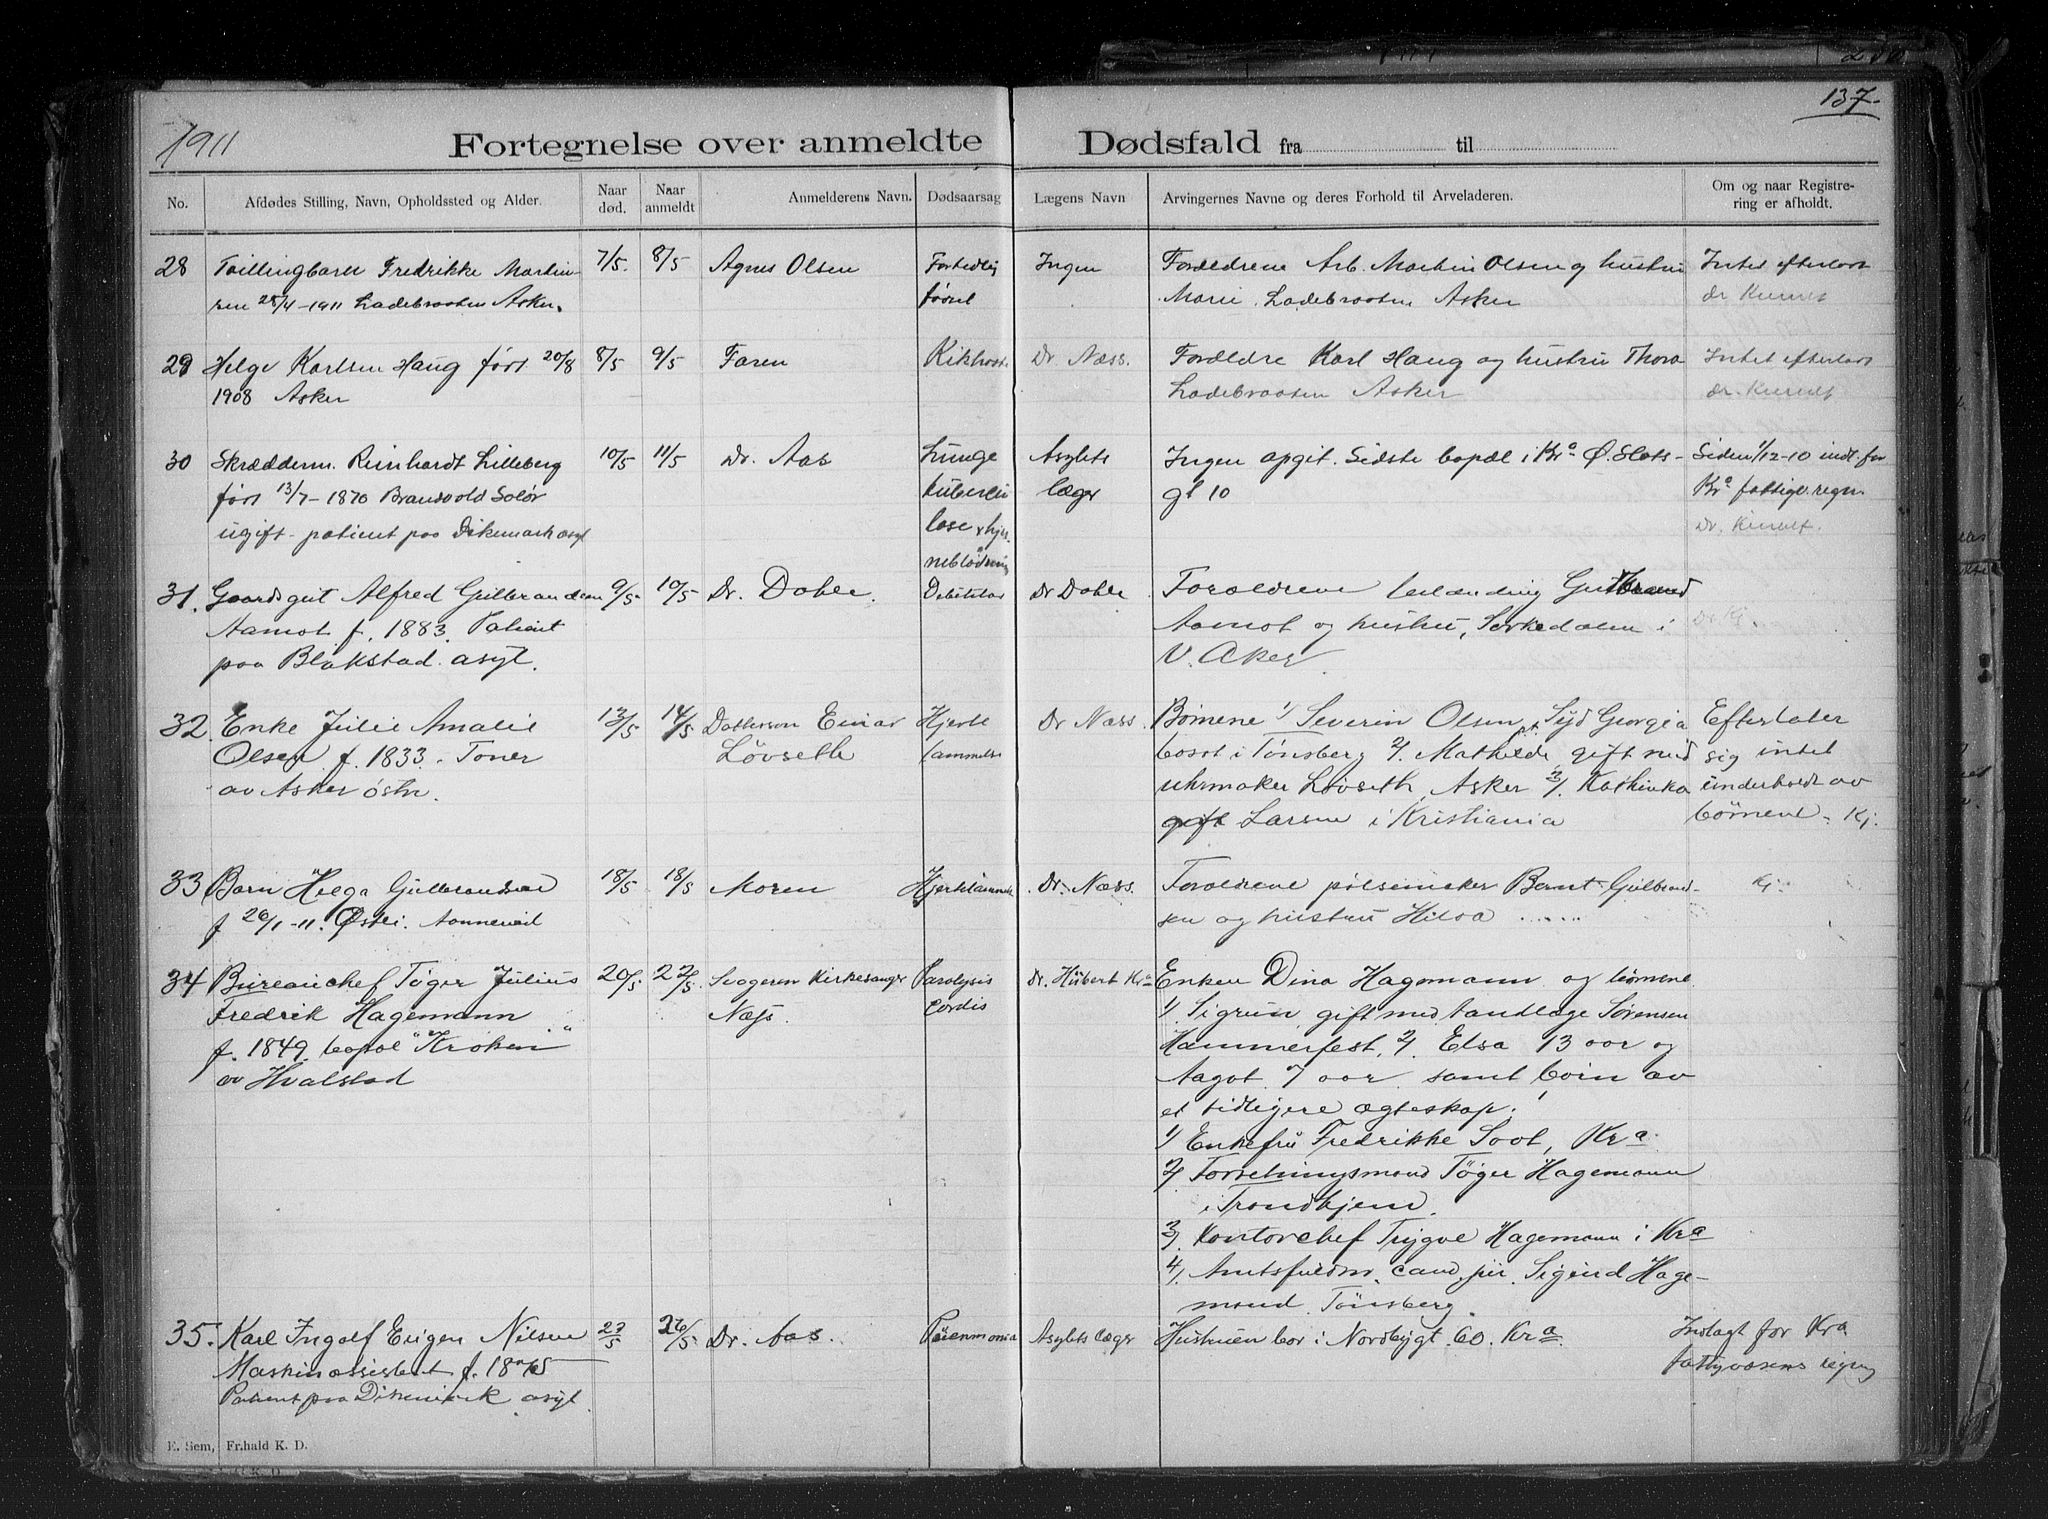 137.
1911
Fortegnelse over anmeldte Dødsfald fra til
No. Afdødes Stilling, Navn, Opholdssted og Alder. Naar død. Naar anmeldt Anmelderens Navn. Dødsaarsag Lægens Navn Arvingernes Navne og deres Forhold til Arveladeren. Om og naar Registrering er afholdt.
28 Tvillingbarn Fredrikke Martin- 7/5. 8/5 Agnes Olsen Fortidlig Ingen Forældrene Arb. Martin Olsen og hustru Intet efterlatt
sen 25/4-1911 Ladebraaten Asker. født Marie. Ladebraaten Asker
29 Helge Karlsen Haug født 20/8 8/5 9/5 Faren Kikhoste Dr Næss. Forældre Karl Haug og hustru Thora Intet efterlatt
1908 Asker Ladebraaten Asker
30 Skrædderm. Reinhardt Lilleberg 10/5 11/5 Dr. Aas Lunge Asylets Ingen opgit. Sidste bopæl i Kra Ø. Slots- Siden 1/12-10 indl. for
født 13/7-1870 Brandvold Solør tuberku læger gt 10 Kra fattigv. regn.
ugift - patient paa Dikemark asyl lose & hjer-
neblødning
31. Gaardsgut Alfred Gulbrandsen 9/5 10/5 Dr. Dahle. Debilitas Dr Dahle Forældrene Gulbrand Dr. Kj.
Aamot f. 1883. Patient Aamot og hustru, Sørkedalen i
paa Blakstad asyl. V. Aker
32. Enke Julie Amalie 13/5 14/5 Dattersøn Einar Hjerte Dr Næss. Børnene 1/ Severin Olsen, Syd Georgia Efterlater
Olsen f. 1833. Toner Løvseth lammelse bosat i Tønsberg 2/. Mathilde, gift med sig intet
av Asker østre. uhrmaker Løvseth, Asker 3/. Kathinka underholdt av
gift Larsen i Kristiania børnene. Kj.
33 Barn Helga Gulbrandsen 18/5 18/5 Moren Hjertelammelse Dr. Næss. Forældrene pølsemaker Bernt Gulbrand- Kj.
f 26/1-11. Østli. Aanneveid sen og hustru Hilda ......
34 Bureauchef Tøger Julius 20/5. 22/5. Svogeren Kirkesanger Paralysis dr. Hübert Kra Enken Dina Hagemann og børnene
Fredrik Hagemann Næss. cordis 1/ Sigrun, gift med tandlæge Sørensen
f. 1849. bopæl "Kroken" Hammerfest, 2/. Elsa 13 aar og
av Hvalstad Aagot 7 aar samt børn av
et tidligere ægteskap:
1/ Enkefru Fredrikke Soot, Kra.
2/ Forretningsmand Tøger Hagemann
i Trondhjem.
3/. Kontorchef Trygve Hagemann i Kra
4/. Amtsfuldm. cand. jur. Sigurd Hage-
mand Tønsberg.
35. Karl Ingolf Eugen Nilsen 23/5 26/5. Dr. Aas. Pneumonia Asylets læger Hustruen bor i Nordbygt. 60. Kra. Indlagt for Kra
Maskinassistent f. 1875 fattigvæsens regning
Patient paa Dikemark asyl.
E. Sem, Fr.hald K. D.